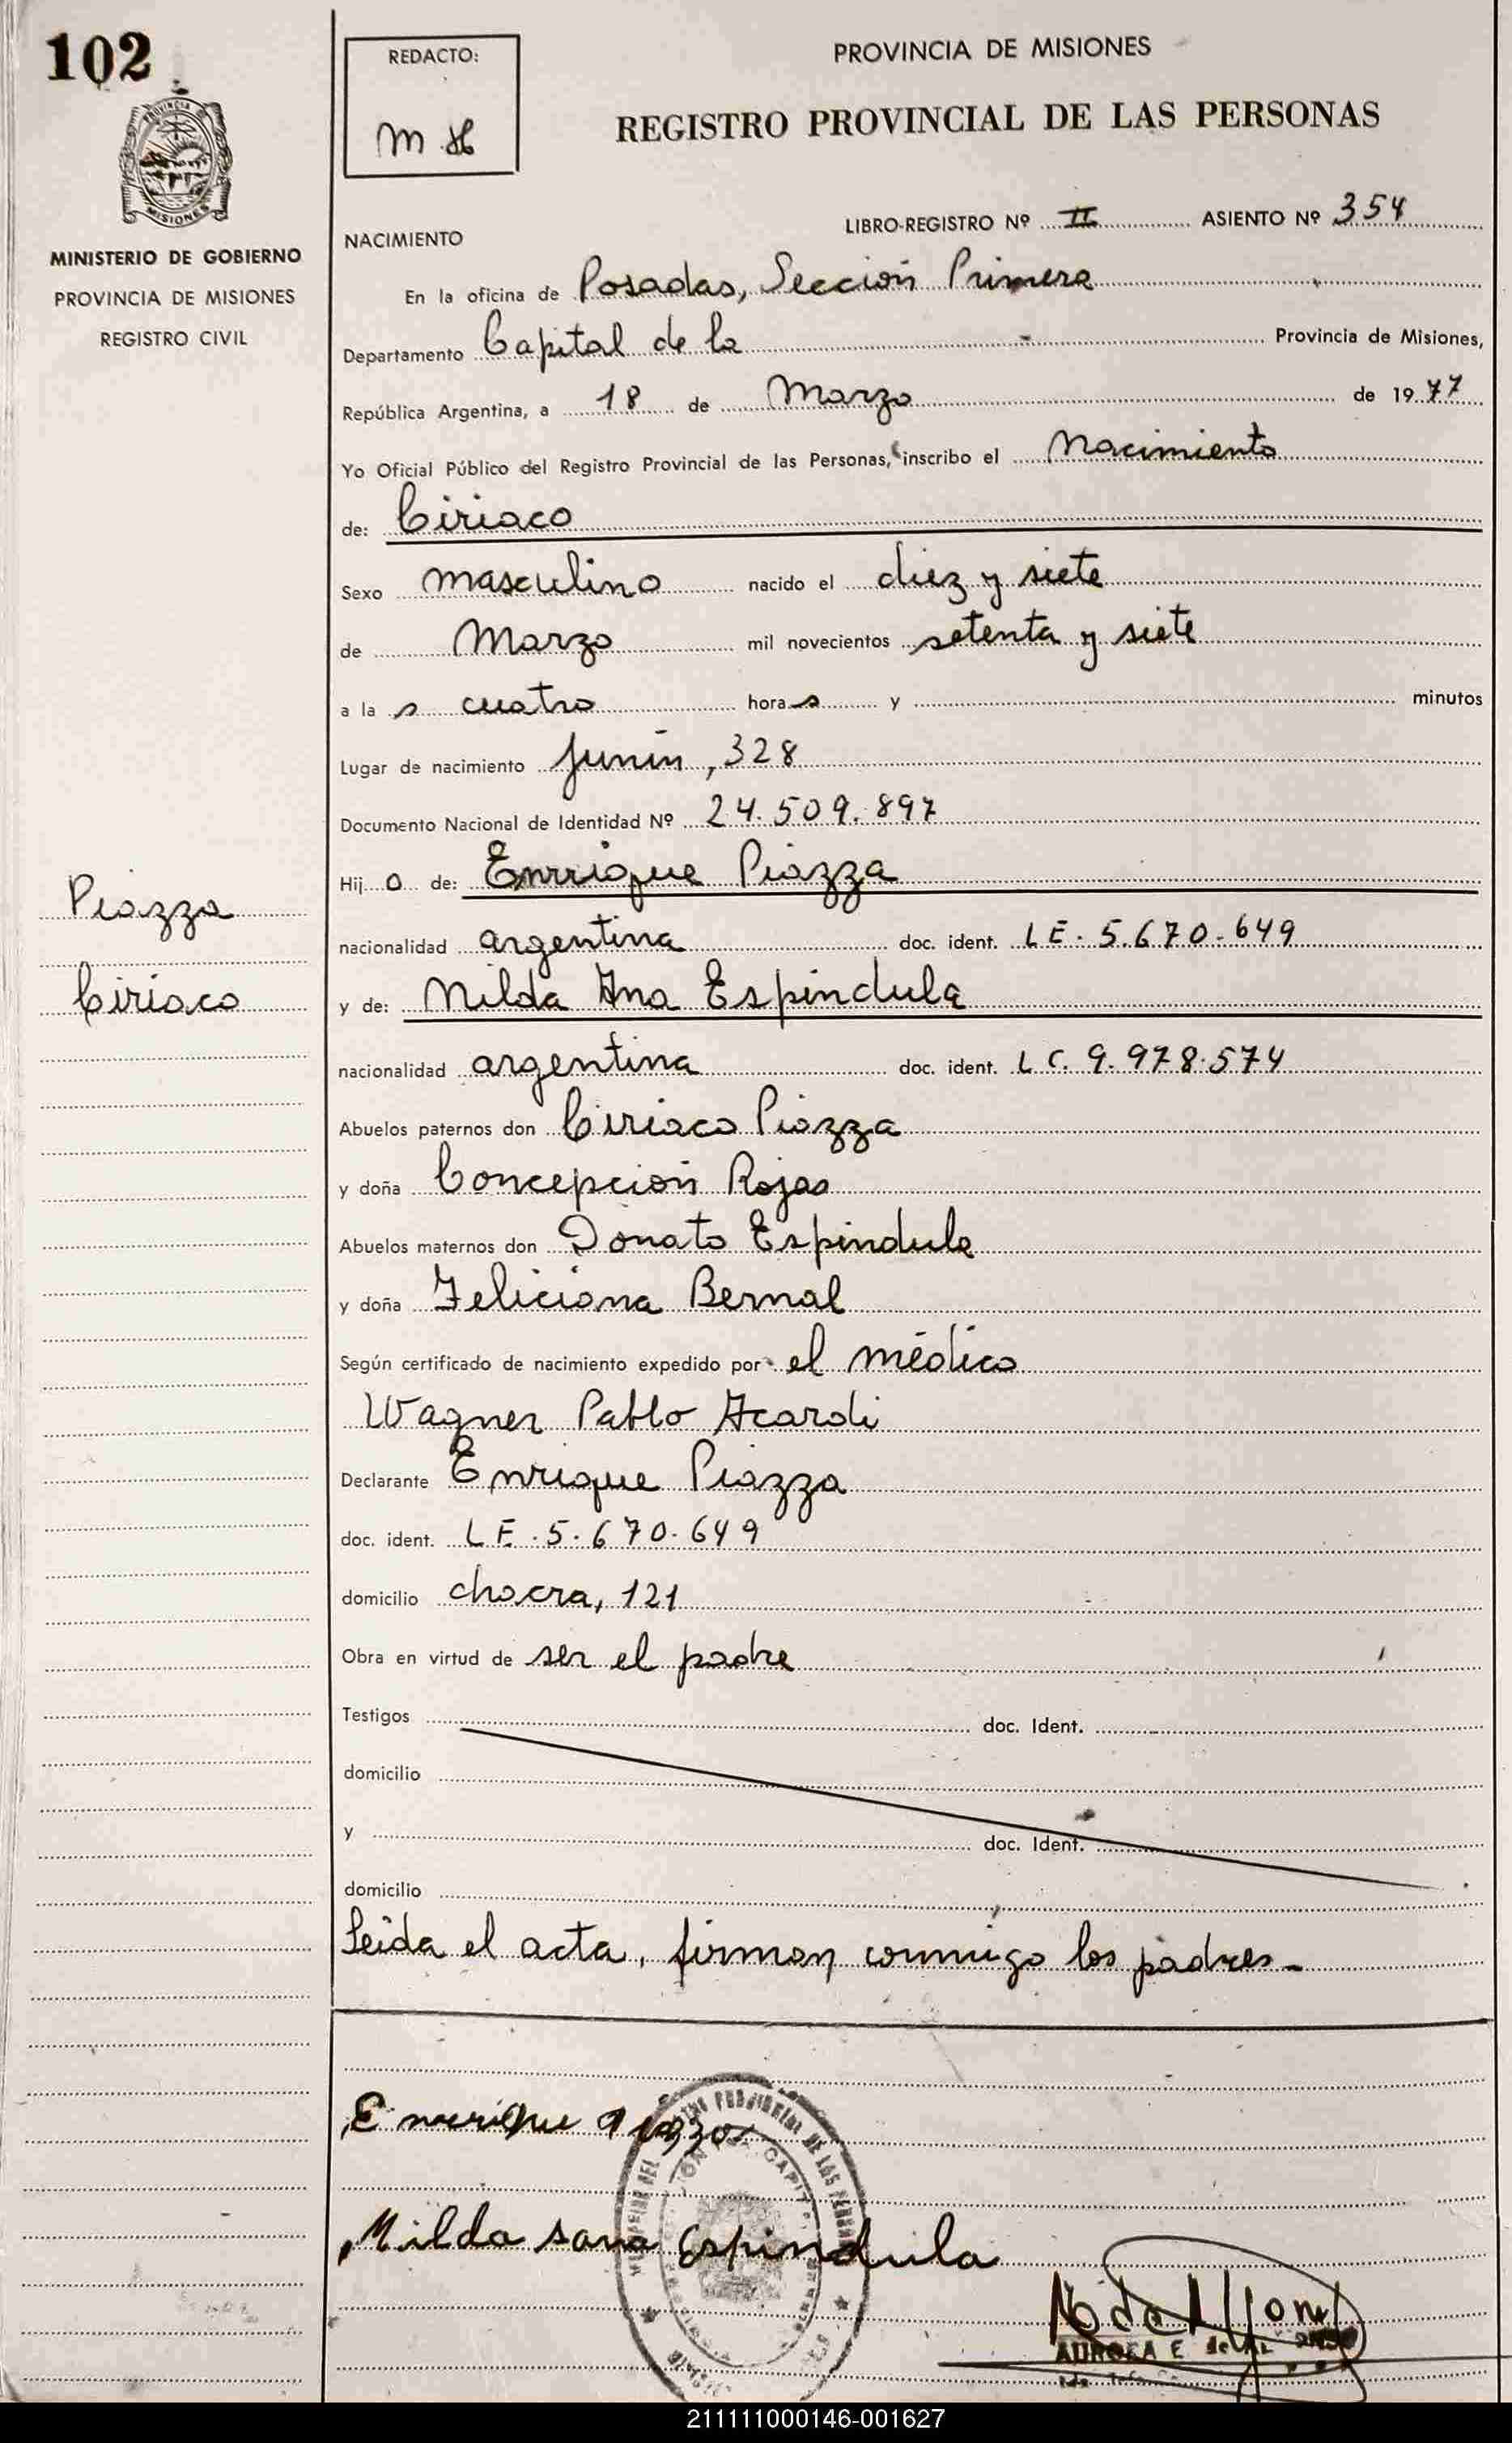 102
REDACTO:
M H
PROVINCIA DE MISIONES
REGISTRO PROVINCIAL DE LAS PERSONAS
PROVINCIA
MISIONES
MINISTERIO DE GOBIERNO
PROVINCIA DE MISIONES
REGISTRO CIVIL
LIBRO-REGISTRO Nº II ASIENTO Nº 354
NACIMIENTO
En la oficina de Posadas, Sección Primera
Departamento Capital de la Provincia de Misiones,
República Argentina, a 18 de Marzo de 1977
Yo Oficial Público del Registro Provincial de las Personas, inscribo el Nacimiento
de: Ciriaco
Sexo masculino nacido el diez y siete
de Marzo mil novecientos setenta y siete
a las cuatro horas y minutos
Lugar de nacimiento Junín, 328
Documento Nacional de Identidad Nº 24.509.897
Hijo de: Enrrique Piazza
Piazza
Ciriaco
nacionalidad argentina doc. ident. LE. 5.670.649
y de: Nilda Ana Espindula
nacionalidad argentina doc. ident. LC. 9.978.574
Abuelos paternos don Ciriaco Piazza
y doña Concepción Rojas
Abuelos maternos don Donato Espindula
y doña Feliciana Bernal
Según certificado de nacimiento expedido por el médico
Wagner Pablo Acardi
Declarante Enrique Piazza
doc. ident. LE. 5.670.649
domicilio chacra, 121
Obra en virtud de ser el padre
Testigos doc. Ident.
domicilio
y doc. Ident.
domicilio
Leida el acta, firman conmigo los padres.
Enrrique
Nilda Espindula
AURORA E.
211111000146-001627